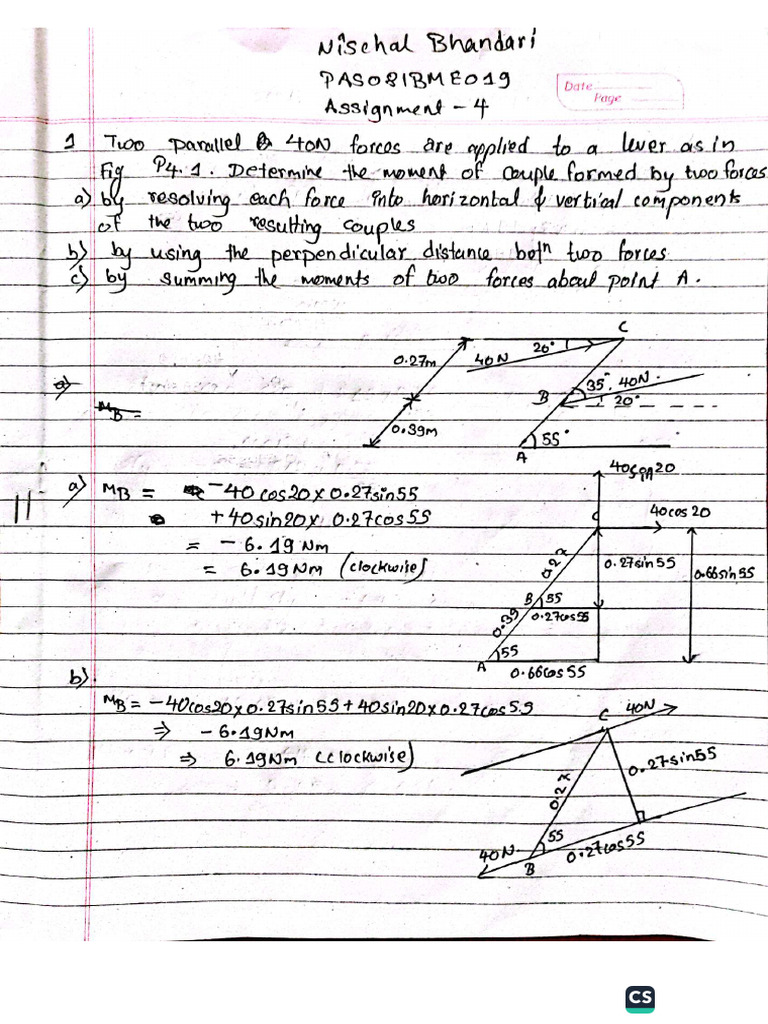 Nischal Bhandari
PAS081BME019
Assignment - 4
Date
Page
1 Two parallel 40N forces are applied to a lever as in
Fig P4.1. Determine the moment of couple formed by two forces
a) by resolving each force into horizontal & vertical components
of the two resulting couples
b) by using the perpendicular distance betn two forces
c) by summing the moments of two forces about point A.
C
20°
0.27m
40N
35° 40N.
B
20°
a)
MB =
0.39m
55°
A
a) MB = -40cos20×0.27sin55
+40sin20× 0.27cos55
= -6.19Nm
= 6.19Nm (clockwise)
11
40sin20
40cos20
C
0.27
0.27sin55
0.66sin55
B 55
0.27cos55
0.39
55
A
0.66cos55
b).
MB = -40cos20×0.27sin55+40sin20×0.27cos55
⇒ -6.19Nm
⇒ 6.19Nm (clockwise)
C 40N
0.27sin55
0.27
55
40N.
0.27cos55
B
CS